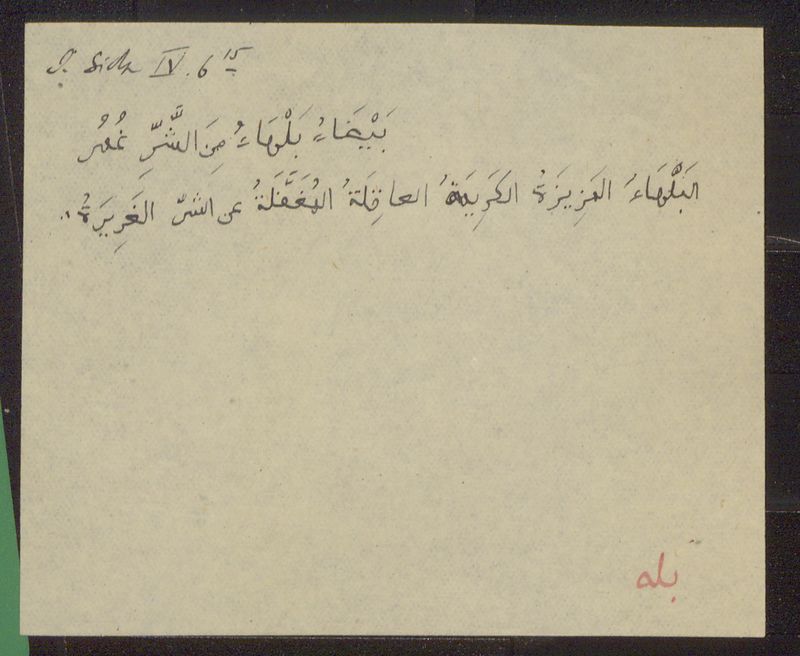 I. Sidh IV. 6 15
بَيْضَاءُ بَلْهَاءُ مِنَ الشَّرِّ غُمُر
البَلْهَاءُ العَزِيزَةُ الكَرِيمَةُ العاقِلَةُ المُغَفَّلَةُ عن الشرّ الغَرِيرَةُ.
بله